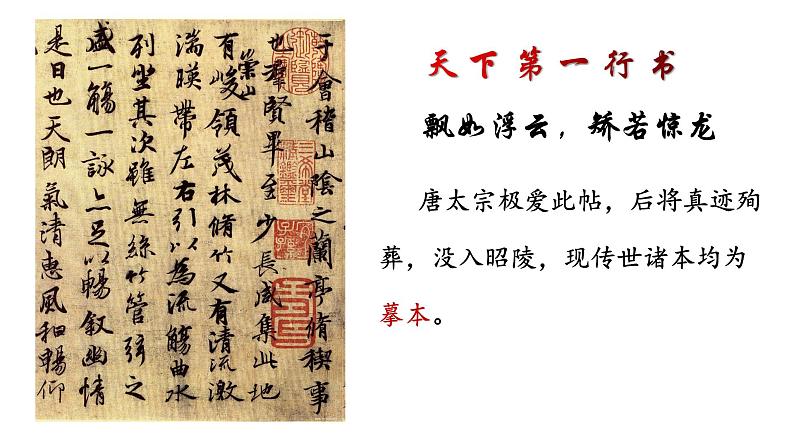 于會稽山陰之蘭亭脩稧事
也羣賢畢至少長咸集此地
有崇山峻領茂林脩竹又有清流激
湍暎帶左右引以為流觴曲水
列坐其次雖無絲竹管弦之
盛一觴一詠亦足以暢敘幽情
是日也天朗氣清惠風和暢仰
天下第一行书
飘如浮云，矫若惊龙
唐太宗极爱此帖，后将真迹殉
葬，没入昭陵，现传世诸本均为
摹本。